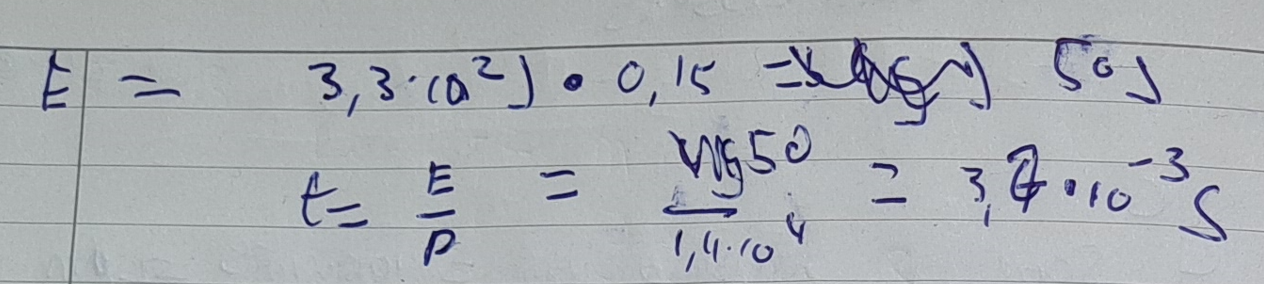 E = 3,3·10²J · 0,15 = 50J
t = E/P = 50/1,4·10⁴ = 3,7·10⁻³ S